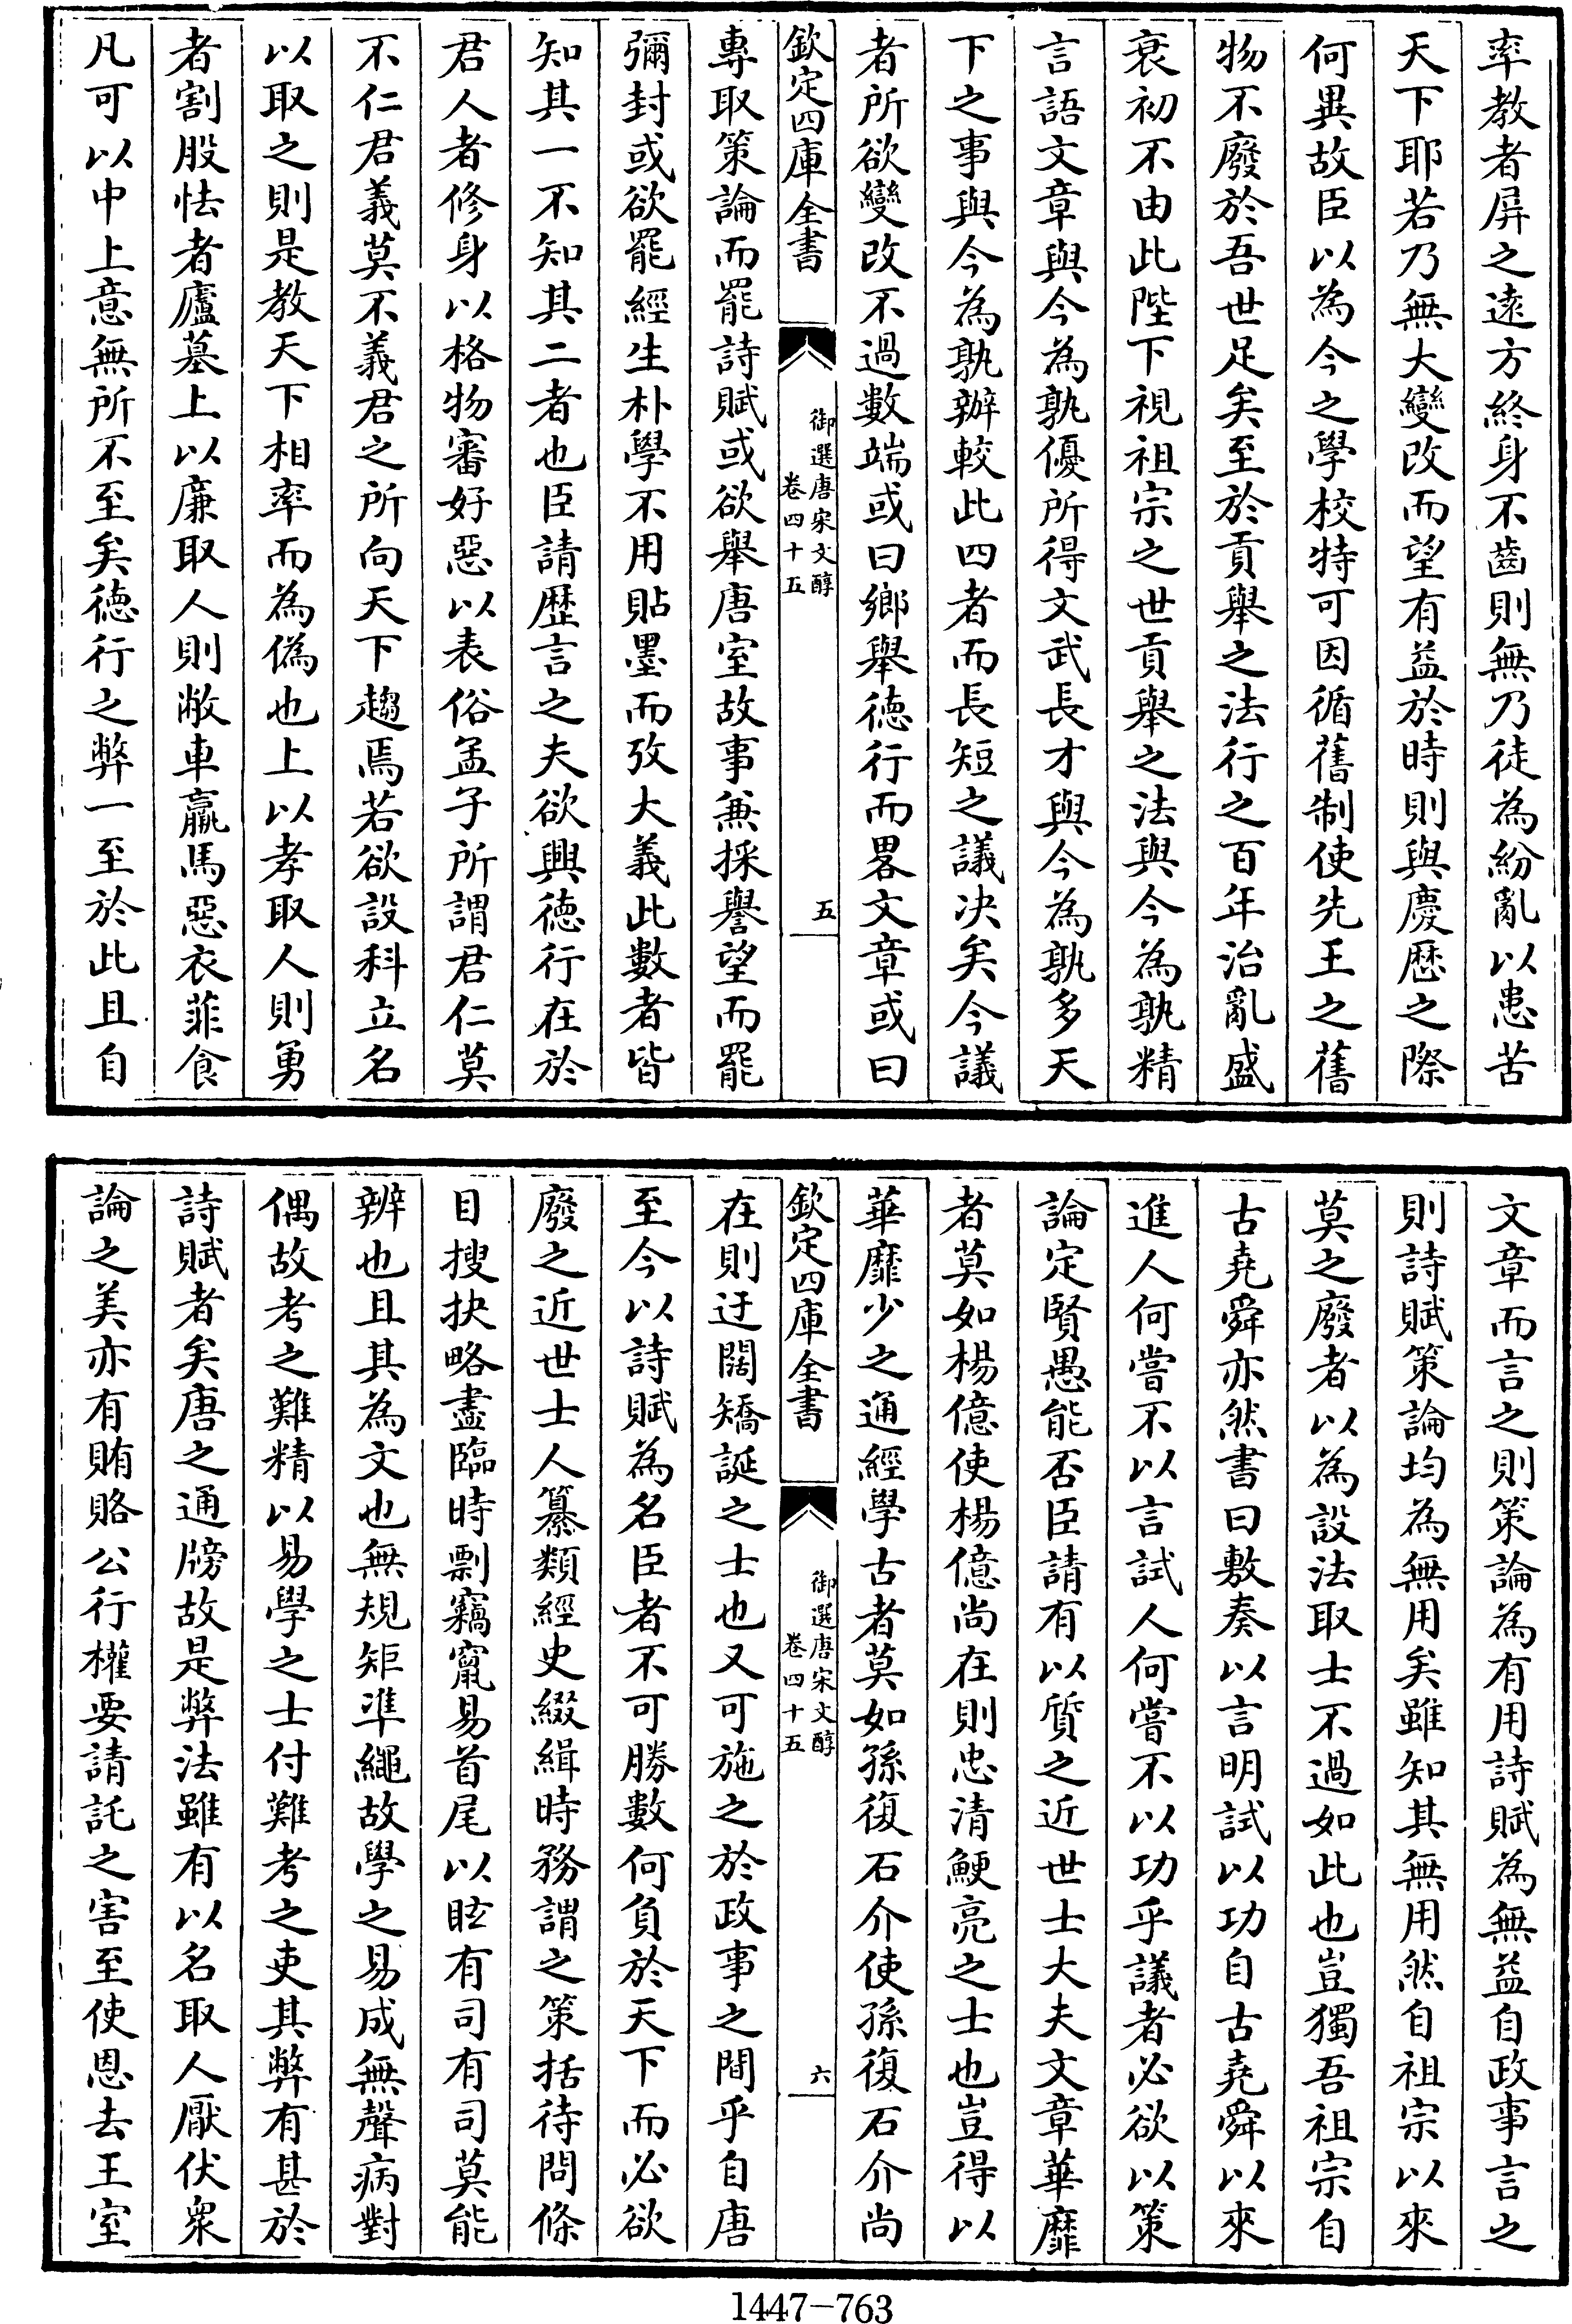 率教者屏之逺方終身不齒則無乃徒為紛亂以患苦
天下耶若乃無大變改而望有益於時則與慶厯之際
何異故臣以為今之學校特可因循舊制使先王之舊
物不廢於吾世足矣至於貢舉之法行之百年治亂盛
衰初不由此陛下視祖宗之世貢舉之法與今為孰精
言語文章與今為孰優所得文武長才與今為孰多天
下之事與今為孰辦較此四者而長短之議决矣今議
者所欲變改不過數端或曰鄉舉徳行而畧文章或曰
欽定四庫全書
御選唐宋文醇
卷四十五
五
專取策論而罷詩賦或欲舉唐室故事兼採譽望而罷
彌封或欲罷經生朴學不用貼墨而攷大義此數者皆
知其一不知其二者也臣請歴言之夫欲興徳行在於
君人者修身以格物審好惡以表俗孟子所謂君仁莫
不仁君義莫不義君之所向天下趨焉若欲設科立名
以取之則是教天下相率而為偽也上以孝取人則勇
者割股怯者廬墓上以廉取人則敝車羸馬惡衣菲食
凡可以中上意無所不至矣徳行之弊一至於此且自
文章而言之則策論為有用詩賦為無益自政事言之
則詩賦策論均為無用矣雖知其無用然自祖宗以來
莫之廢者以為設法取士不過如此也豈獨吾祖宗自
古堯舜亦然書曰敷奏以言明試以功自古堯舜以來
進人何嘗不以言試人何嘗不以功乎議者必欲以策
論定賢愚能否臣請有以質之近世士大夫文章華靡
者莫如楊億使楊億尚在則忠清鯁亮之士也豈得以
華靡少之通經學古者莫如孫復石介使孫復石介尚
欽定四庫全書
御選唐宋文醇
卷四十五
六
在則迂闊矯誕之士也又可施之於政事之間乎自唐
至今以詩賦為名臣者不可勝數何負於天下而必欲
廢之近世士人纂類經史綴緝時務謂之策括待問條
目搜抉略盡臨時剽竊竄易首尾以眩有司有司莫能
辨也且其為文也無規矩準繩故學之易成無聲病對
偶故考之難精以易學之士付難考之吏其弊有甚於
詩賦者矣唐之通牓故是弊法雖有以名取人厭伏衆
論之美亦有賄賂公行權要請託之害至使恩去王室
1447-763